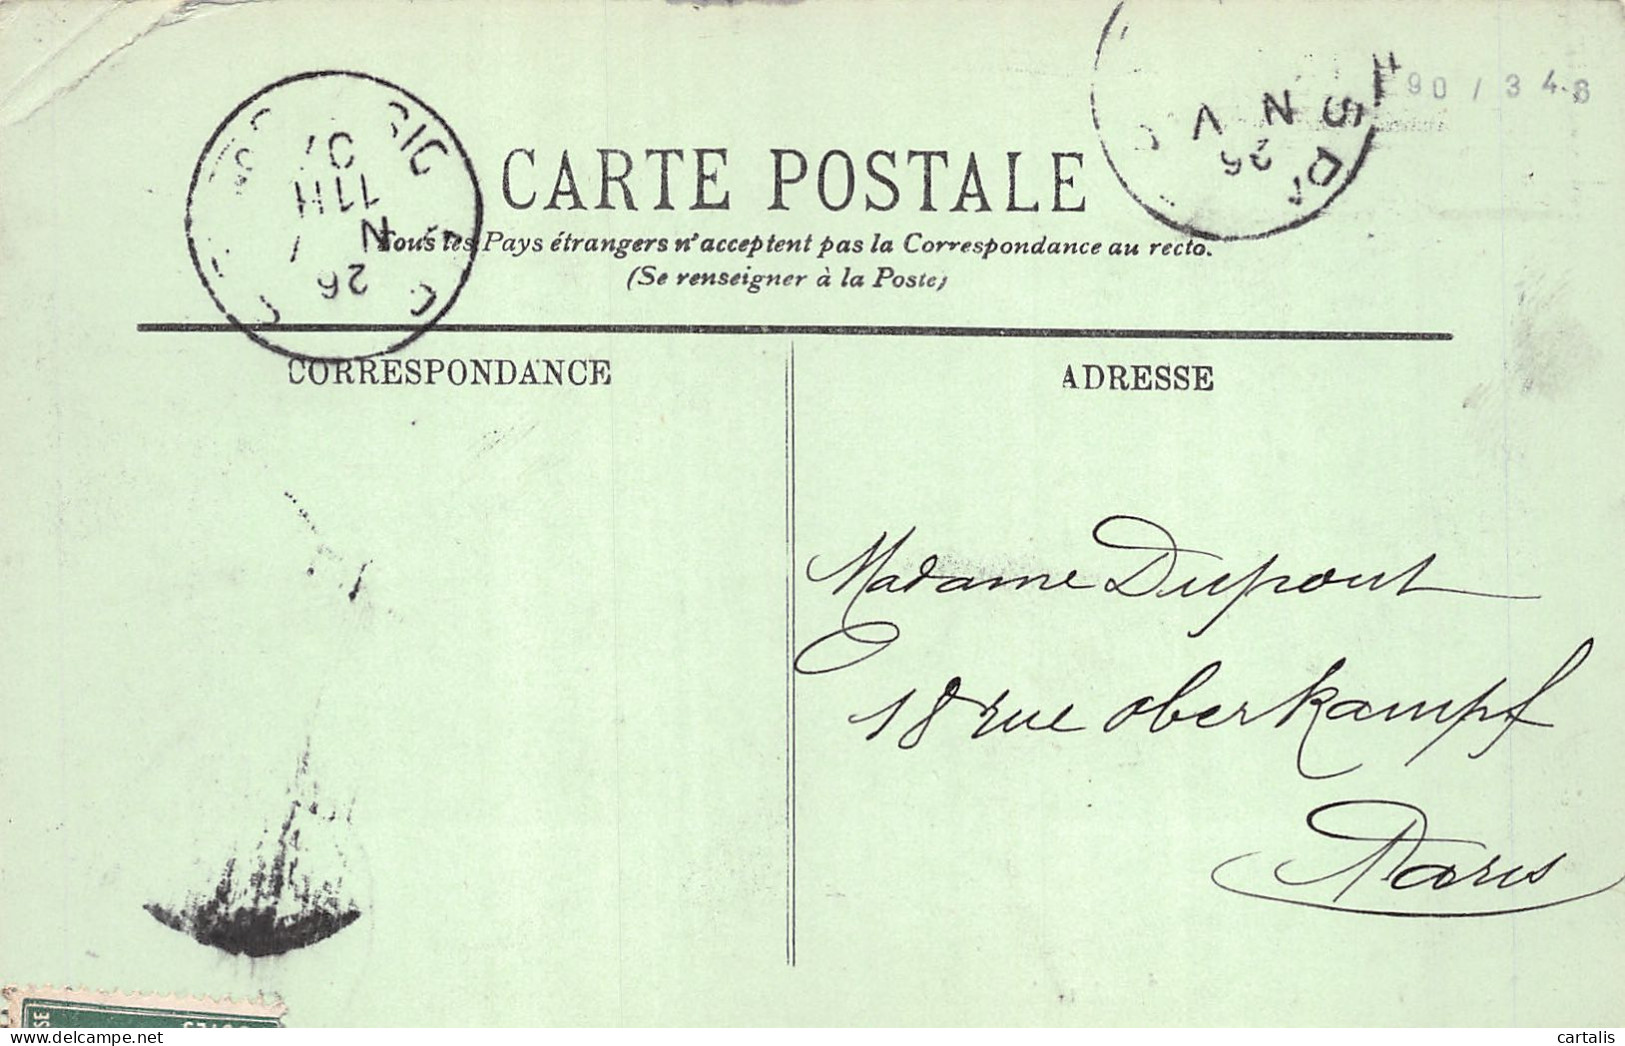 90 / 3 4
CARTE POSTALE
Tous les Pays étrangers n'acceptent pas la Correspondance au recto.
(Se renseigner à la Poste)
11H
26
26
CORRESPONDANCE
ADRESSE
Madame Dupont
18 rue Oberkampf
Paris
cartalis